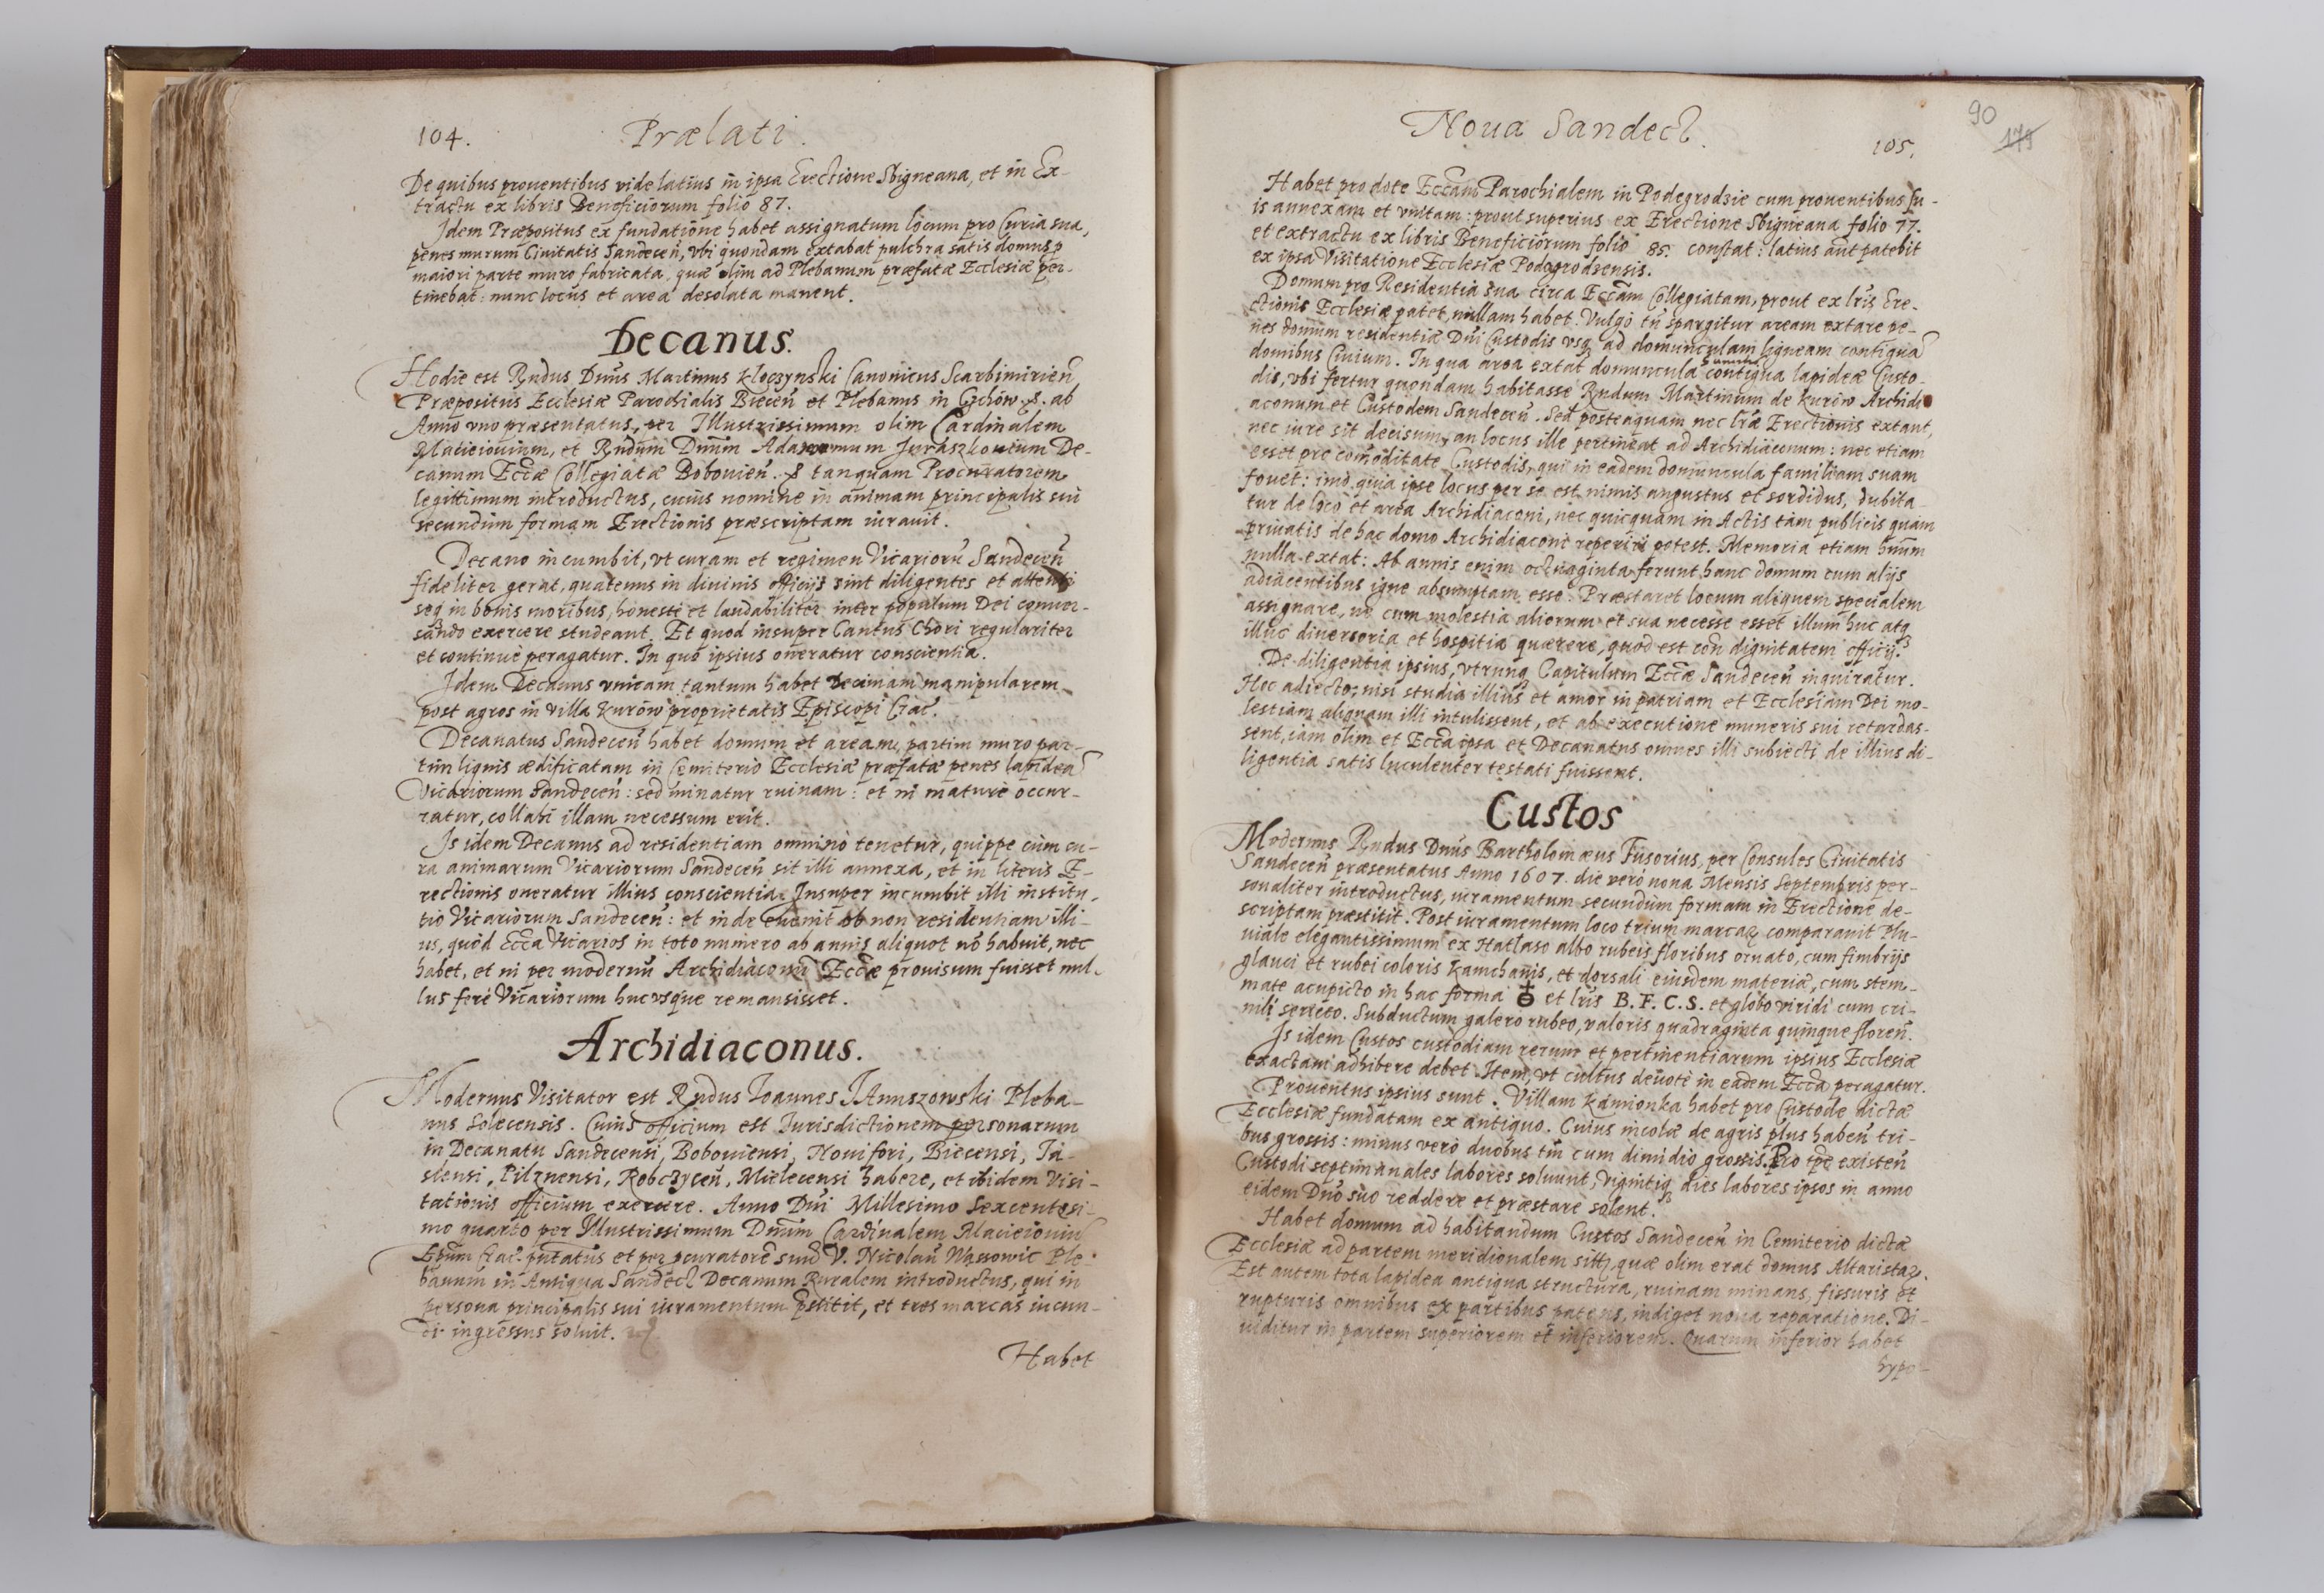 104. Prælati.
De quibus prouentibus vide latius in ipsa Erectione Sbigneana, et in Ex-
tractu ex libris Beneficiorum folio 87.
Idem Præpositus ex fundatione habet assignatum locum pro Curia sua,
penes murum Ciuitatis Sandeceñ, vbi quondam extabat pulchra satis domus p
maiori parte muro fabricata, quæ olim ad Plebanum præfatæ Ecclesiæ per-
tinebat: nunc locus et area desolata manent.
Decanus.
Hodie est Rndus Dnus Martinus Kloczynski Canonicus Scarbimirień
Præpositus Ecclesiæ Parochialis Bieceń et Plebanus in Czchów. S. ab
Anno vno præsentatus, per Illustrissimum olim Cardinalem
Macieiouium, et Rndum Dnum Adamum Juraszkouium De-
canum Eccæ Collegiatæ Bobouień. S tanquam Procuratorem
legittimum introductus, cuius nomine in animam principalis sui
secundum formam Erectionis præscriptam iurauit.
Decano incumbit, vt curam et regimen Vicariorũ Sandeceñ
fideliter gerat, quatenus in diuinis officijs sint diligentes et attenti
seq in bonis moribus, honeste et laudabiliter inter populum Dei conuer-
sando exercere studeant. Et quod insuper Cantus Chori regulariter
et continuè peragatur. In quo ipsius oneratur conscientia.
Idem Decanus vnicam tantum habet Decimam manipularem
post agros in villa Kurów proprietatis Episcopi Crac.
Decanatus Sandeceñ habet domum et aream, partim muro par-
tim lignis ædificatam in Cemiterio Ecclesiæ præfatæ penes lapideã
Vicariorum Sandeceñ: sed minatur ruinam: et ni maturè occur-
ratur, collabi illam necessum erit.
Is idem Decanus ad residentiam omninò tenetur, quippe cùm cu-
ra animarum Vicariorum Sandeceñ sit illi annexa, et in literis E-
rectionis oneratur illius conscientia. Insuper incumbit illi institu-
tio Vicariorum Sandeceñ: et inde euenit ob non residentiam illi-
us, quòd Ecca Vicarios in toto numero ab annis aliquot nõ habuit, nec
habet, et ni per modernũ Archidiaconũ Eccæ prouisum fuisset nul-
lus ferè Vicariorum hucvsque remansisset.
Archidiaconus.
Modernus Visitator est Rndus Ioannes JAnuszowski Pleba-
nus Solecensis. Cuius officium est Iurisdictionem personarum
in Decanatu Sandecensi, Bobouiensi, Nouifori, Biecensi, Ja-
slensi, Pilznensi, Robczyceñ, Mielecensi habere, et ibidem Visi-
tationis officium exercere. Anno Dñi Millesimo Sexcentesi-
mo quarto per Illustrissimum Dnum Cardinalem Macieiouiũ
Epum Crac. putatus et per pcuratorẽ suũ V. Nicolaũ Wassowic Ple-
banum in Antiqua Sandecz Decanum Ruralem introductus, qui in
persona principalis sui iuramentum pstitit, et tres marcas iucun-
di ingressus soluit.
Habet
Noua Sandecz.
90
179
105.
Habet pro dote Eccam Parochialem in Podegrodzie cum prouentibus su-
is annexam et vnitam: prout superius ex Erectione Sbigneana folio 77.
et extractu ex libris Beneficiorum folio 85. constat: latius aut patebit
ex ipsa Visitatione Ecclesiæ Podegrodzensis.
Domum pro Residentia sua circa Eccam Collegiatam, prout ex lris Ere-
ctionis Ecclesiæ patet, nullam habet. Vulgò tñ spargitur aream extare pe-
nes domum residentiæ Dñi Custodis vsq ad domunculam ligneam contiguã
domibus Ciuium. In qua area extat domuncula contigua lapideæ Custo-
dis, vbi fertur quondam habitasse Rndum Martinum de Kurów Archidi
aconum et Custodem Sandeceñ. Sed posteaquam nec lræ Erectionis extant,
nec iure sit decisum, an locus ille pertineat ad Archidiaconum: nec etiam
esset pro comoditate Custodis, qui in eadem domuncula familiam suam
fouet: imò quia ipse locus per se est nimis angustus et sordidus, dubita-
tur de loco et area Archidiaconi, nec quicquam in Actis tàm publicis quàm
priuatis de hac domo Archidiaconi reperiri potest. Memoria etiam hñum
nulla extat: Ab annis enim octuaginta ferunt hanc domum cum alijs
adiacentibus igne absumptam esse. Præstaret locum aliquem specialem
assignare, ne cum molestia aliorum et sua necesse esset illum huc atq
illuc diuersoria et hospitia quærere, quod est con dignitatem officij.
De diligentia ipsius, vtrunq Capitulum Eccæ Sandeceñ inquiratur.
Hoc adiecto, nisi studia illius et amor in patriam et Ecclesiam Dei mo-
lestiam aliquam illi intulissent, et ab executione muneris sui retardas-
sent, iàm olim et Ecca ipsa et Decanatus omnes illi subiecti de illius di-
ligentia satis luculenter testati fuissent.
Custos
Modernus Rndus Dnus Bartholomæus Fusorius, per Consules Ciuitatis
Sandeceñ præsentatus Anno 1607. die verò nona Mensis Septembris per-
sonaliter introductus, iuramentum secundùm formam in Erectione de-
scriptam præstitit. Post iuramentum loco trium marcaz comparauit Plu-
uiale elegantissimum ex Hatlaso albo rubeis floribus ornato, cum fimbrijs
glauci et rubei coloris Kamchanis, et dorsali eiusdem materiæ, cum stem-
mate acupicto in hac forma et lris B. F. C. S. et globo viridi cum cri-
nili sericeo. Subductum galero rubeo, valoris quadraginta quinque floreñ.
Is idem Custos custodiam rerum et pertinentiarum ipsius Ecclesiæ
exactam adhibere debet. Item, vt cultus deuotè in eadem Ecca peragatur.
Prouentus ipsius sunt. Villam Kamionka habet pro Custode dictæ
Ecclesiæ fundatam ex antiquo. Cuius incolæ de agris plus habeñ tri-
bus grossis: minus verò duobus tm̃ cum dimidio grossis. Pro tpe existeñ
Custodi septimanales labores soluunt, vigintiq dies labores ipsos in anno
eidem Dño suo reddere et præstare solent.
Habet domum ad habitandum Custos Sandeceñ in Cemiterio dictæ
Ecclesiæ ad partem meridionalem sitã, quæ olim erat domus Altaristaz.
Est autem tota lapidea antiqua structura, ruinam minans, fissuris et
rupturis omnibus ex partibus patens, indiget noua reparatione. Di-
uiditur in partem superiorem et inferiorem. Quarum inferior habet
hypo-